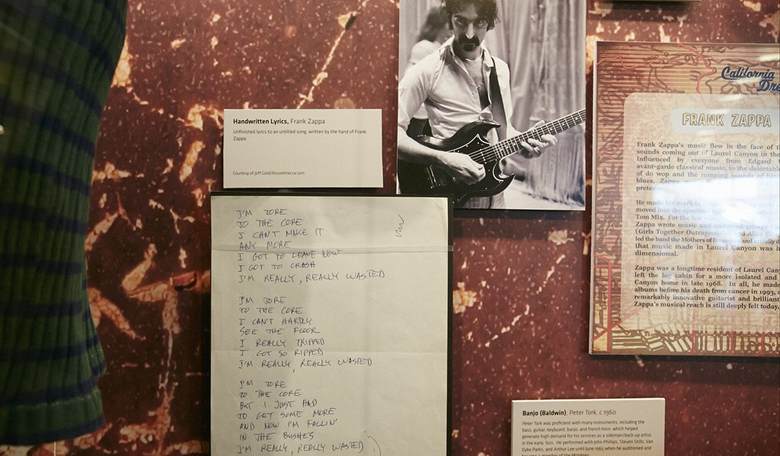 Handwritten Lyrics, Frank Zappa
Unfinished lyrics to an untitled song, written by the hand of Frank
Zappa.
Courtesy of Jeff Gold/Recordmecca.com
I'M TORE
TO THE CORE
I CAN'T MAKE IT
ANY MORE
I GOT TO LEAVE NOW
I GOT TO CRASH
I'M REALLY, REALLY WASTED
I'M TORE
TO THE CORE
I CAN'T HARDLY
SEE THE FLOOR
I REALLY TRIPPED
I GOT SO RIPPED
I'M REALLY, REALLY WASTED
I'M TORE
TO THE CORE
BUT I JUST HAD
TO GET SOME MORE
AND NOW I'M FALLIN'
IN THE BUSHES
I'M REALLY, REALLY WASTED
California
Dre
FRANK ZAPPA
Frank Zappa's music flew in the face of t
sounds coming out of Laurel Canyon in the
Influenced by everyone from Edgard
avant-garde classical music, to the delectable
of do wop and the romping sounds of
blues, Zappa
prete
He made his mark
moved into the
Tom Mix. For the
Zappa wrote music
(Girls Together Outrageously)
led the band the Mothers of
that music made in Laurel Canyon was
dimensional.
Zappa was a longtime resident of Laurel Can
left the log cabin for a more isolated and
Canyon home in late 1968. In all, he made
albums before his death from cancer in 1993,
remarkably innovative guitarist and brilliant
Zappa's musical reach is still deeply felt today.
Banjo (Baldwin), Peter Tork, c.1960
Peter Tork was proficient with many instruments, including the
bass, guitar, keyboard, banjo, and french horn, which helped
generate high demand for his services as a sideman/back-up artist
in the early '60s. He performed with John Phillips, Steven Stills, Van
Dyke Parks, and Arthur Lee until June 1965 when he auditioned and
became a member of the Monkees.